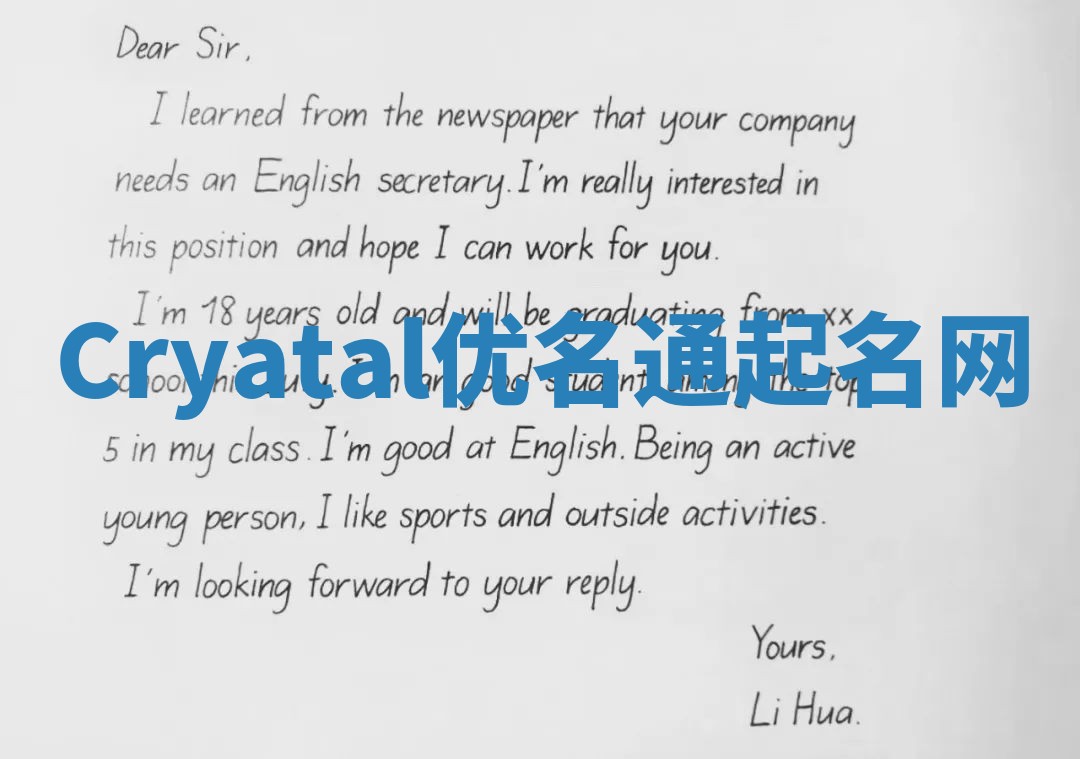 Dear Sir,
I learned from the newspaper that your company
needs an English secretary. I'm really interested in
this position and hope I can work for you.
I'm 18 years old and will be graduating from xx
Cryatal优名通起名网
school July. I'm an good student among the top
5 in my class. I'm good at English. Being an active
young person, I like sports and outside activities.
I'm looking forward to your reply.
Yours,
Li Hua.